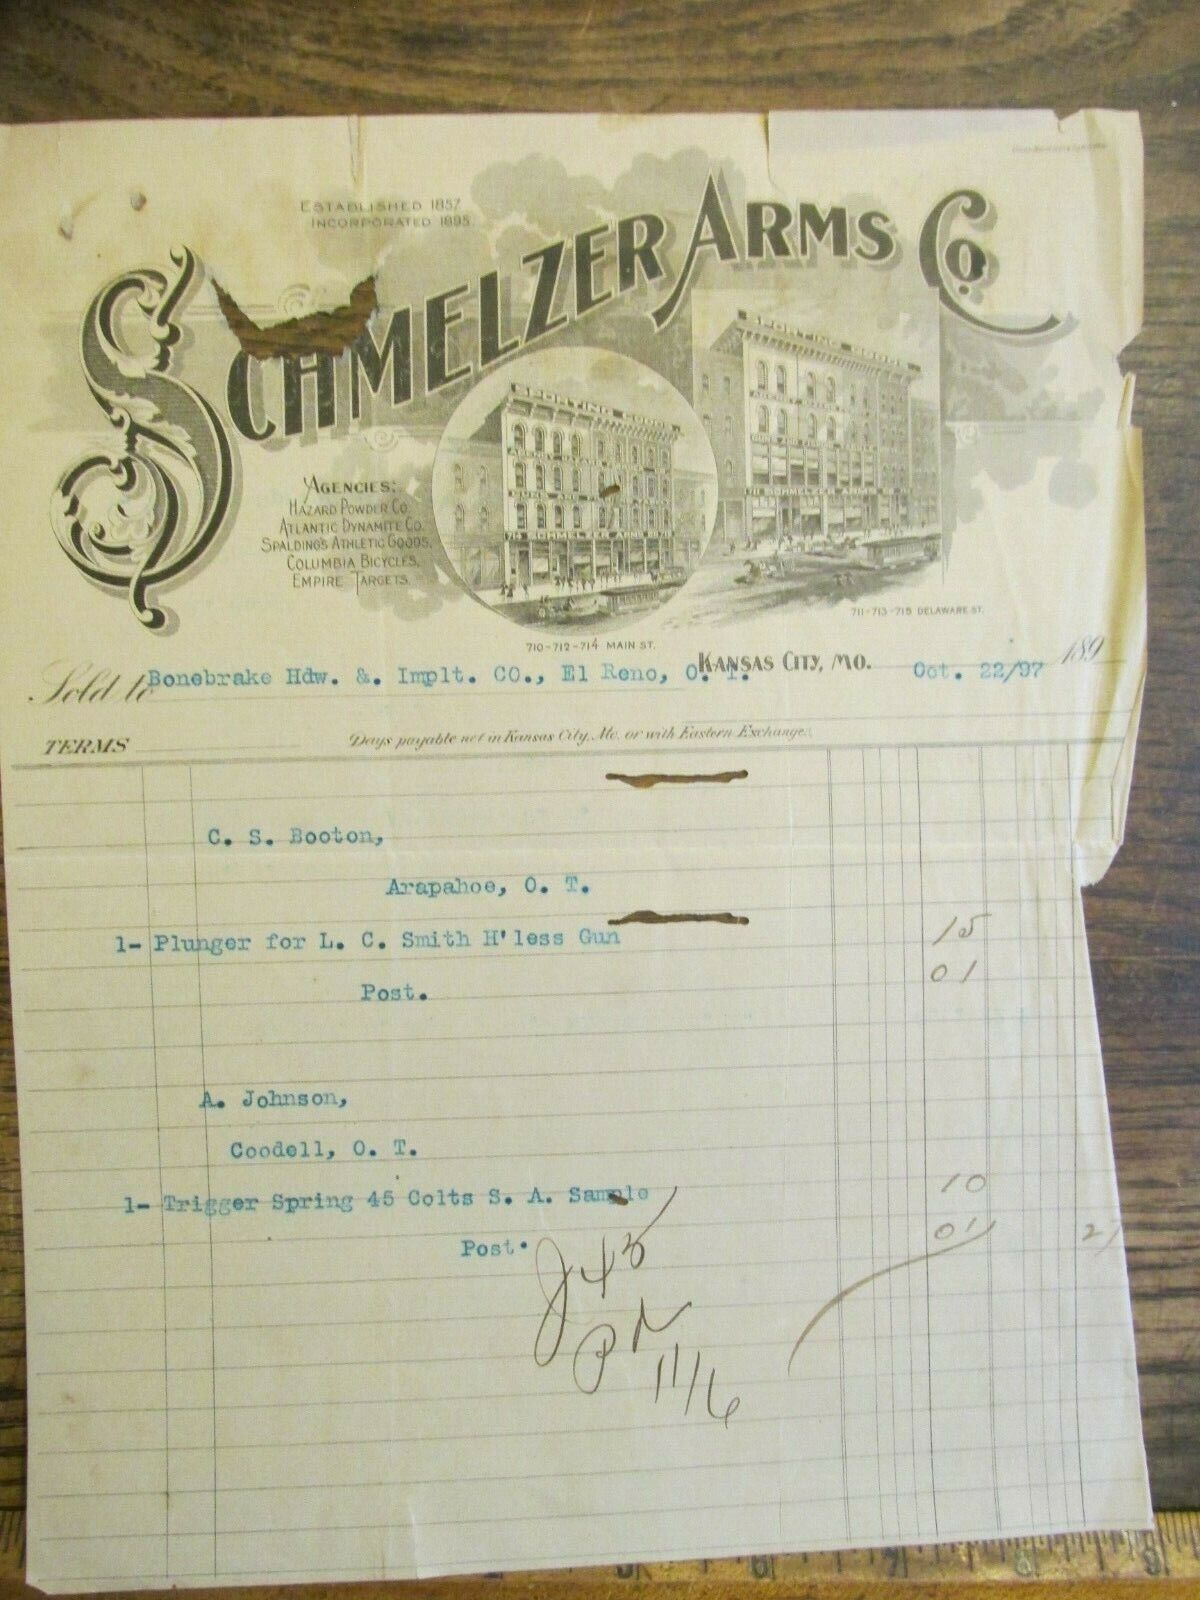 ESTABLISHED 1857
INCORPORATED 1895.
SCHMELZER ARMS CO.
SPORTING GOODS
SPORTING GOODS
AGENCIES:
HAZARD POWDER CO.
ATLANTIC DYNAMITE CO.
SPALDING'S ATHLETIC GOODS.
COLUMBIA BICYCLES.
EMPIRE TARGETS.
714 SCHMELZER ARMS CO. 710
711 SCHMELZER ARMS CO.
711-713-715 DELAWARE ST.
710-712-714 MAIN ST.
KANSAS CITY, MO. 189
Sold to Bonebrake Hdw. &. Implt. CO., El Reno, O. T. Oct. 22/97
TERMS Days payable net in Kansas City, Mo. or with Eastern Exchange.
C. S. Booton,
Arapahoe, O. T.
1- Plunger for L. C. Smith H'less Gun 15
Post. 01
A. Johnson,
Coodell, O. T.
1- Trigger Spring 45 Colts S. A. Sample 10
Post. 01 21
J45
11/6